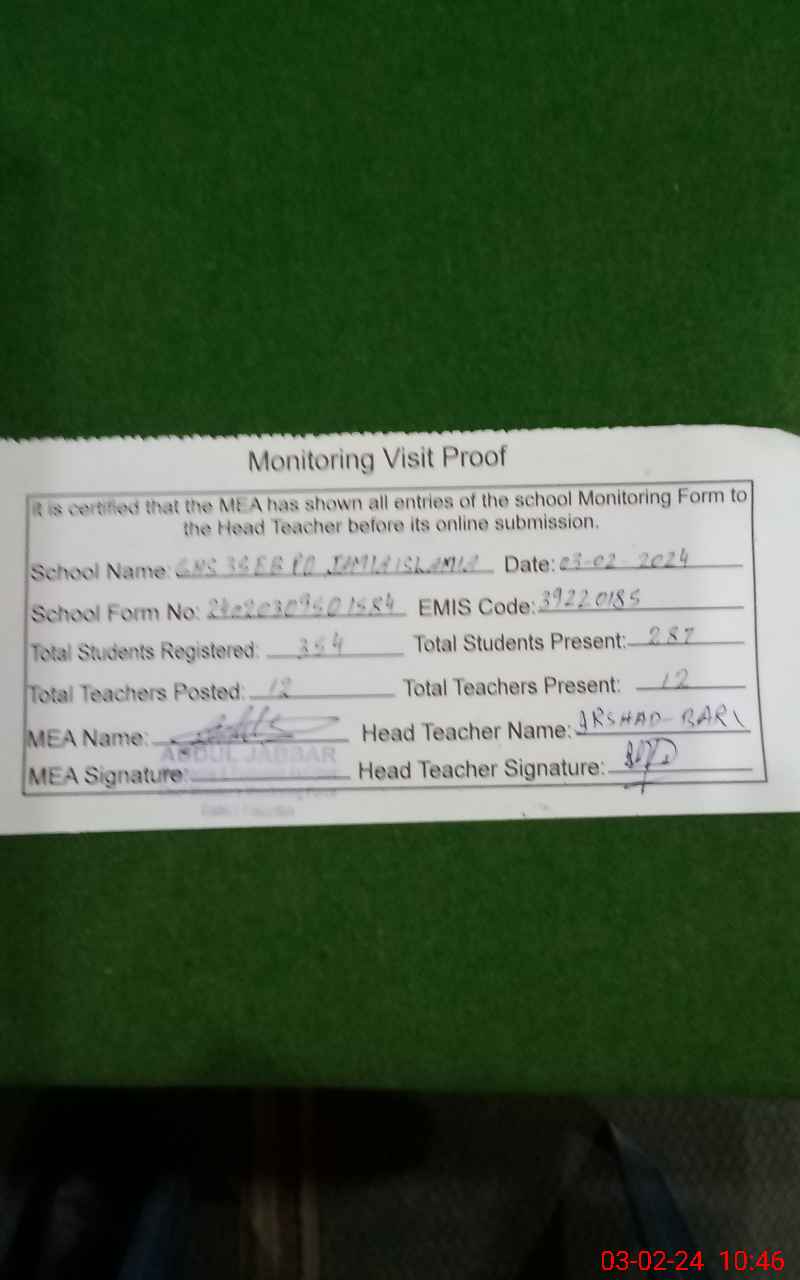 Monitoring Visit Proof
It is certified that the MEA has shown all entries of the school Monitoring Form to
the Head Teacher before its online submission.
School Name: GHS 36 EB PO JAMIA ISLAMIA Date: 03-02-2024
School Form No: EMIS Code: 39220185
Total Students Registered: 354 Total Students Present: 287
Total Teachers Posted: 12 Total Teachers Present: 12
MEA Name: Head Teacher Name: ARSHAD BARI
ABDUL JABBAR
MEA Signature: Head Teacher Signature:
03-02-24 10:46